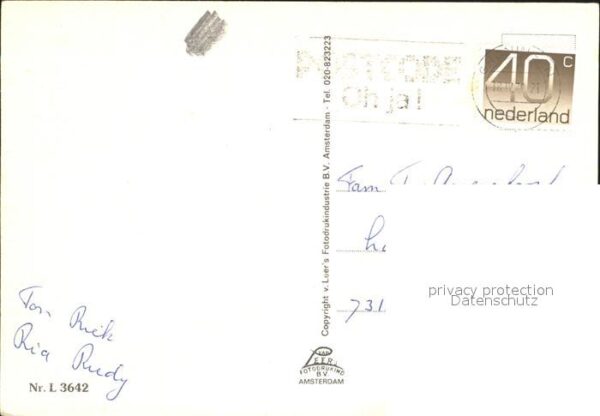 POSTCODE
Oh ja!
40 c
nederland
Copyright v. Leer's Fotodrukindustrie B.V. Amsterdam - Tel. 020-823223
Fam
privacy protection
Datenschutz
731
Ton Riek
Ria Rudy
VAN
LEER'S
FOTODRUKIND
B.V.
AMSTERDAM
Nr. L 3642